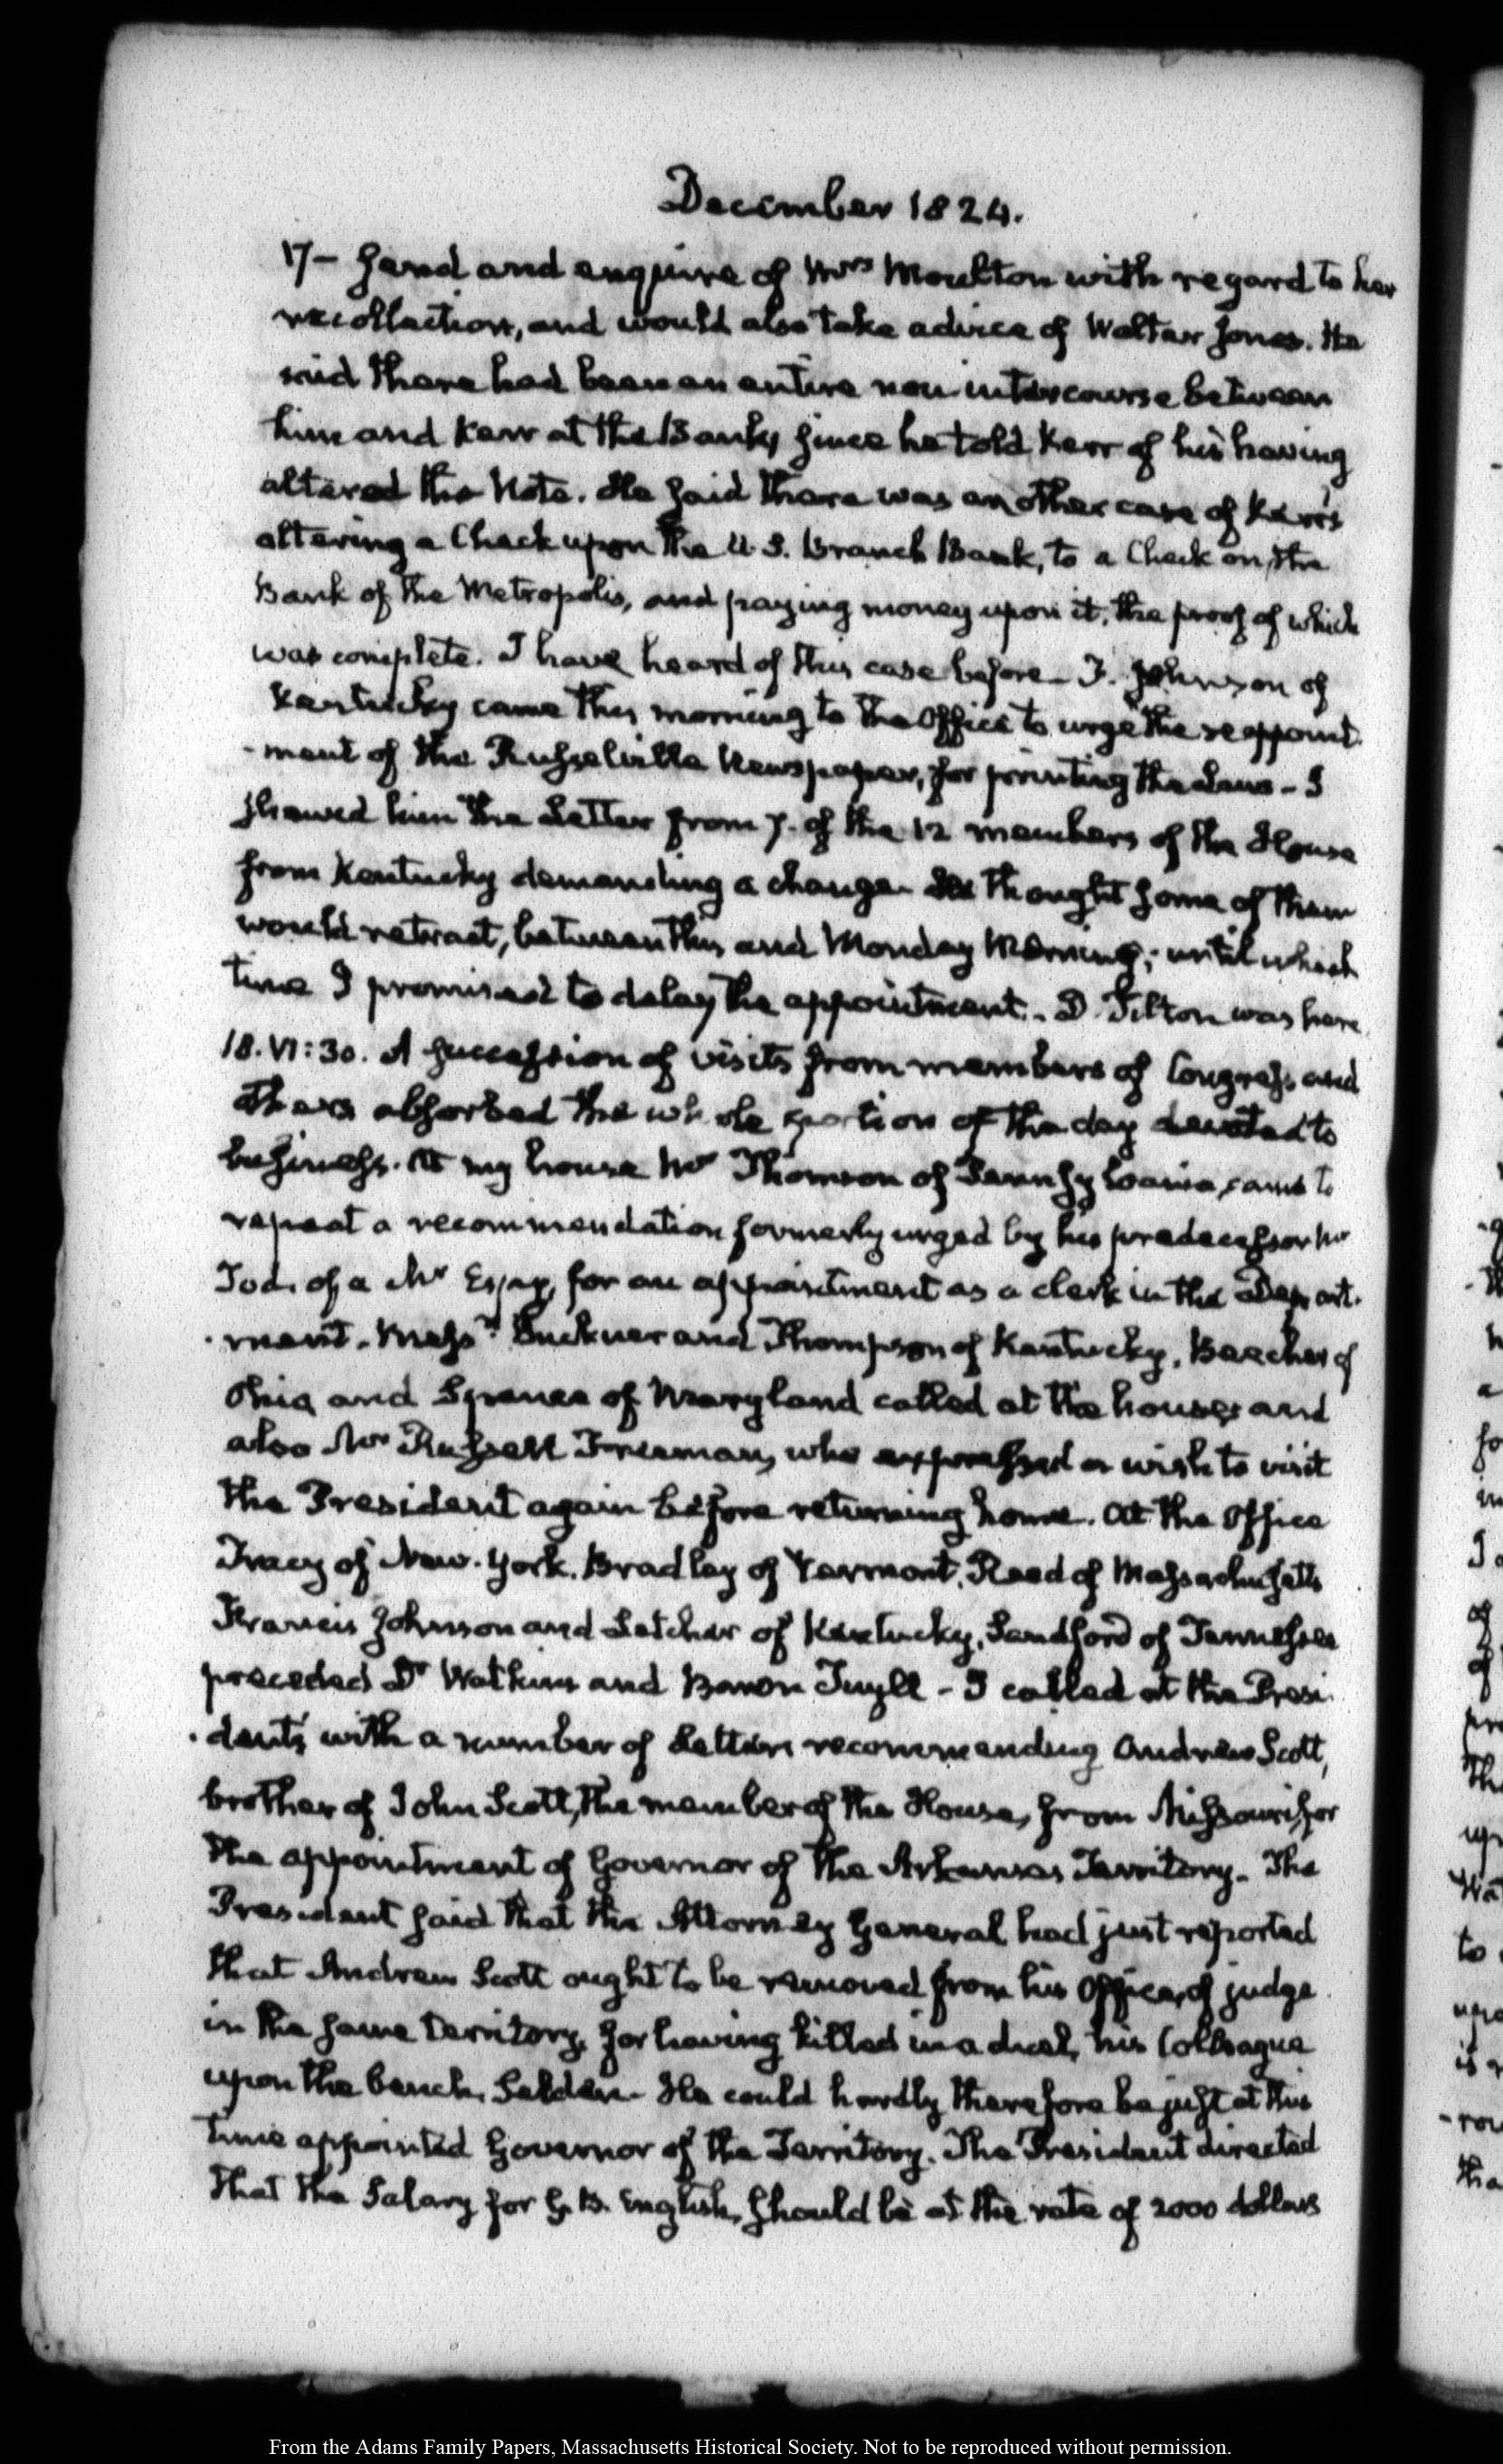 December 1824.
17— send and enquire of Mrs Moulton with regard to her
recollection, and would also take advice of Walter Jones. He
said there had been an entire non-intercourse between
him and Kerr at the Bank, since he told Kerr of his having
altered the Note. He said there was another case of Kerr's
altering a Check upon the U.S. Branch Bank, to a Check on the
Bank of the Metropolis, and paying money upon it, the proof of which
was complete. I have heard of this case before— F. Johnson of
Kentucky came this morning to the Office to urge the reappoint
-ment of the Russelville Newspaper, for printing the Laws— I
shewed him the Letter from 7. of the 12 members of the House
from Kentucky demanding a change— He thought some of them
would retract, between this and Monday Morning; until which
time I promised to delay the appointment.— D. Tilton was here
18. VI:30. A succession of visits from members of Congress and
others absorbed the whole portion of the day devoted to
business. At my house Mr Thomson of Pennsylvania, came to
repeat a recommendation formerly urged by his predecessor Mr
Tod. of a Mr Espy, for an appointment as a clerk in the Depart-
-ment. Messrs Buckner and Thompson of Kentucky, Beecher of
Ohio and Spence of Maryland called at the house; and
also Mr Russell Freeman, who expressed a wish to visit
the President again before returning home. At the Office
Tracy of New-York. Bradley of Vermont, Reed of Massachusetts
Francis Johnson and Letcher of Kentucky, Sandford of Tennessee
preceded Dr Watkins and Baron Tuyll— I called at the Presi-
-dent's with a number of Letters recommending Andrew Scott,
brother of John Scott, the member of the House, from Missouri, for
the appointment of Governor of the Arkansas Territory— The
President said that the Attorney General had just reported
that Andrew Scott ought to be removed from his Office, of judge
in the same Territory, for having killed in a duel, his Colleague
upon the bench, Selden— He could hardly therefore be just at this
time appointed Governor of the Territory. The President directed
that the Salary for G. B. English, should be at the rate of 2000 dollars
From the Adams Family Papers, Massachusetts Historical Society. Not to be reproduced without permission.